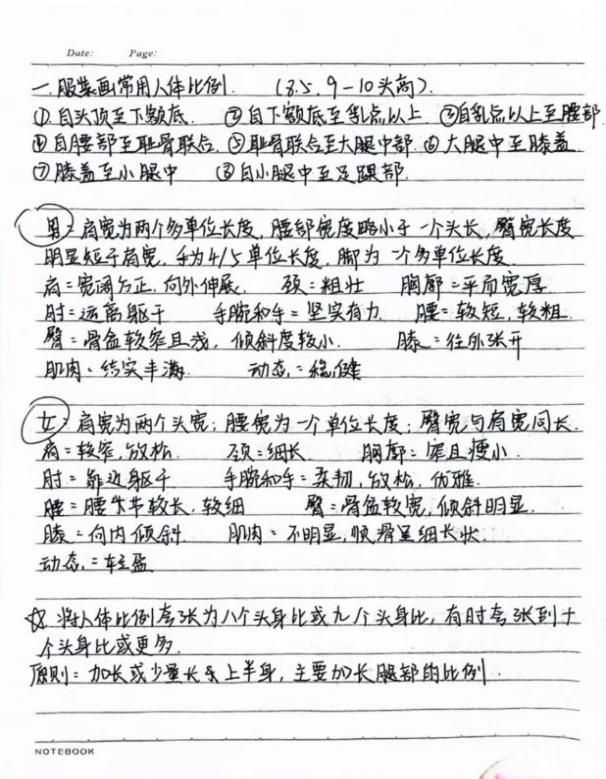 Date: Page:
一.服装画常用人体比例. (8.5.9-10头高).
①.自头顶至下颏底. ②自下额底至乳点以上 ③自乳点以上至腰部
④自腰部至耻骨联合. ⑤耻骨联合至大腿中部. ⑥大腿中至膝盖.
⑦膝盖至小腿中 ⑧自小腿中至足踝部.
男:肩宽为两个多单位长度,腰部宽度略小于一个头长,臀宽长度
明显短于肩宽,手为4/5单位长度,脚为一个多单位长度
肩:宽阔方正,向外伸展. 颈:粗壮 胸廓:平而宽厚
肘:远离躯干 手腕和手:坚实有力. 腰:较短,较粗
臀:骨盆较窄且浅,倾斜度较小. 膝:往外张开
肌肉:结实丰满. 动态:稳健
女:肩宽为两个头宽;腰宽为一个单位长度;臀宽与肩宽同长.
肩:较窄,放松. 颈:细长. 胸廓:窄且瘦小.
肘:靠近躯干 手腕和手:柔韧,放松,优雅.
腰:腰节较长,较细 臀:骨盆较宽,倾斜明显.
膝:向内倾斜. 肌肉:不明显,顺滑呈细长状.
动态:轻盈
☆.将人体比例夸张为八个头身比或九个头身比,有时夸张到十
个头身比或更多.
原则:加长或少量长上半身,主要加长腿部的比例.
NOTEBOOK